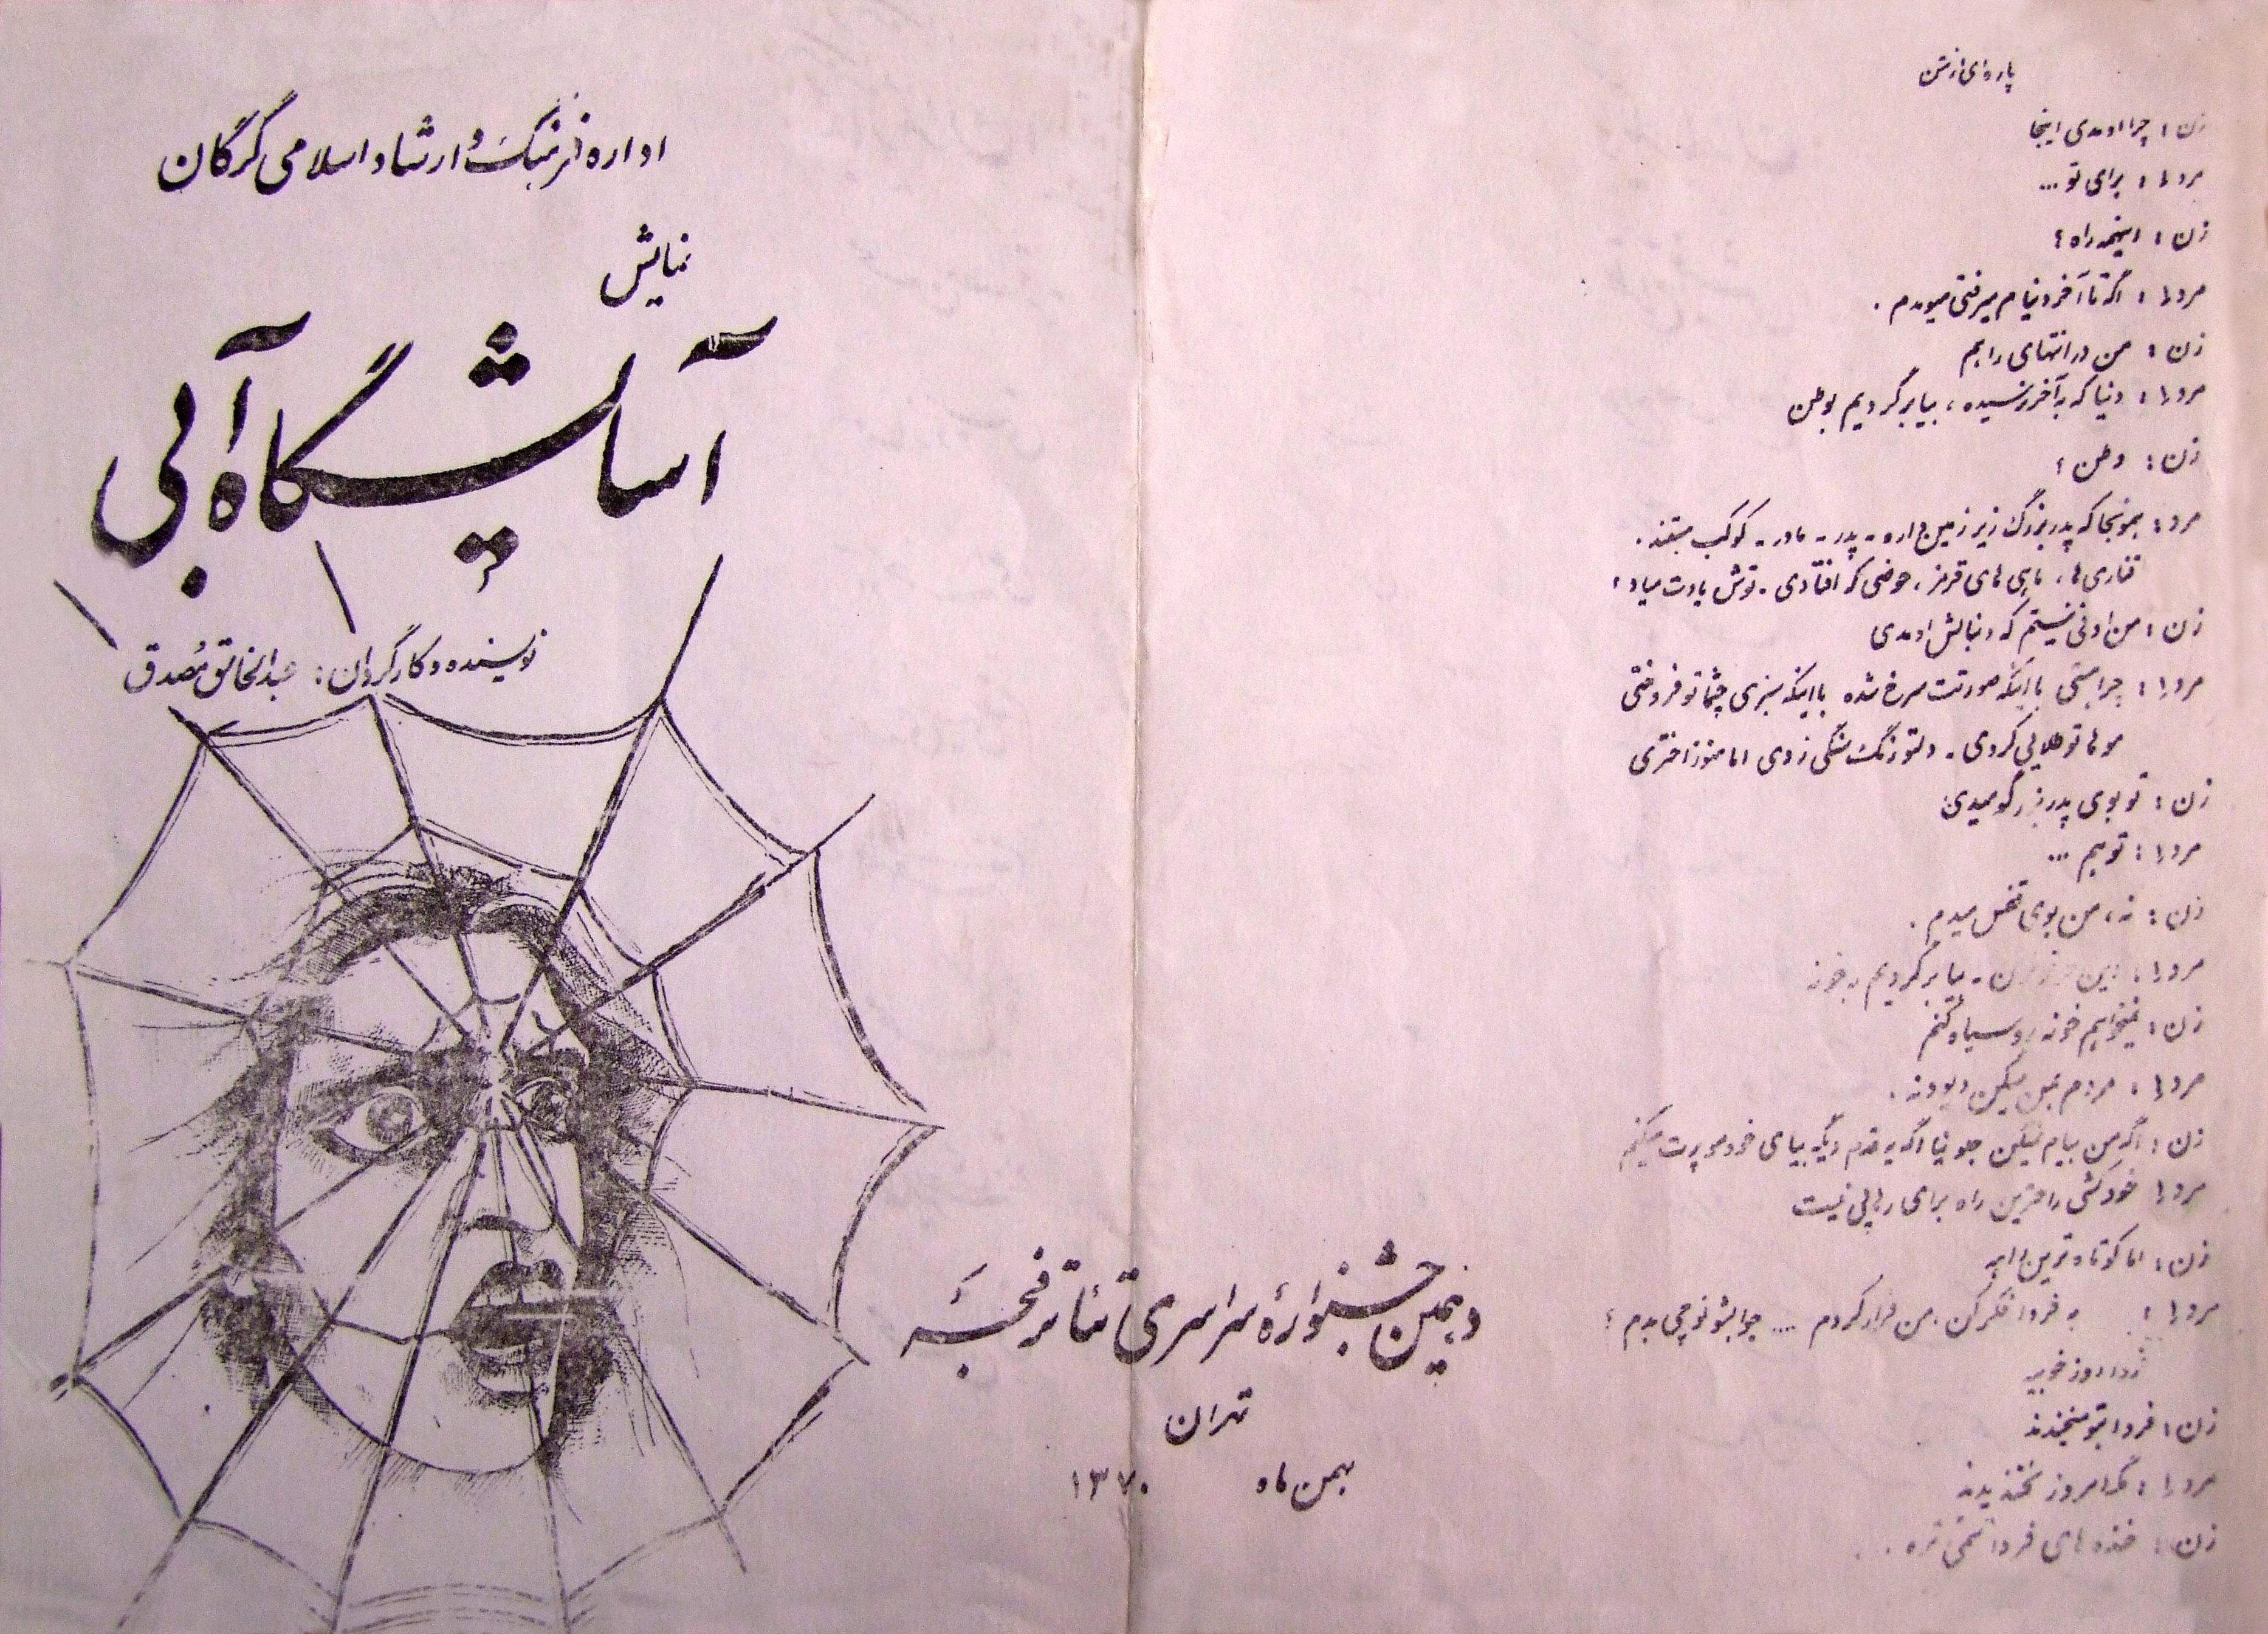 اداره فرهنگ و ارشاد اسلامی گرگان
نمایش
آسایشگاه آبی
نویسنده و کارگردان : عبدالخالق مصدق
دهمین جشنوارهٔ سراسری تئاتر فجر
تهران
بهمن ماه ۱۳۷۰
پاره‌ای از متن
زن : چرا اومدی اینجا
مرد۱ : برای تو ...
زن : اینهمه راه ؟
مرد۱ : اگه تا آخر دنیام میرفتی میومدم .
زن : من در انتهای راهم
مرد۱ : دنیا که به آخر نرسیده ، بیا برگردیم بوطن
زن : وطن ؟
مرد : همونجا که پدربزرگ زیر زمین داره - پدر - مادر - کوکب هستند .
قناری ها ، ماهی های قرمز ، حوضی که افتادی - توش یادت میاد ؟
زن : من اونی نیستم که دنبالش اومدی
مرد۱ : چرا هستی با اینکه صورتت سرخ شده با اینکه سبزی چشاتو فروختی
موهاتو طلایی کردی - دلتو رنگ سنگی زدی اما هنوز اختری
زن : تو بوی پدربزرگو میدی
مرد۱ : تو هم ...
زن : نه ، من بوی تعفن میدم .
مرد۱ : بیا برگردیم به خونه
زن : نمیخواهم خونه رو سیاه کنم
مرد۱ : مردم بمن میگن دیوونه .
زن : اگه من بیام میگن جلو نیا اگه یه قدم دیگه بیای خودمو پرت میکنم
مرد۱ خودکشی راحترین راه برای رهایی نیست
زن : اما کوتاه ترین راهه
مرد۱ : به فردا فکر کن . من فرار کردم .... جوابشونو چی بدم ؟
فردا روز خوبیه
زن : فردا بتو میخندند
مرد۱ : مگه امروز نخندیدند
زن : خنده های فردا تلخ تره . .